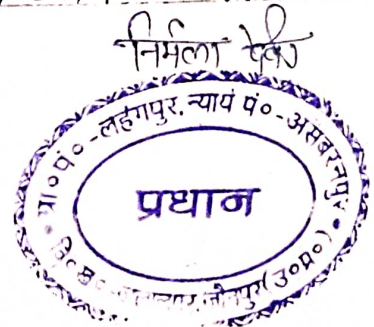 निर्मला देवी
ग्रा०पं०-लहंगपुर, न्याय पं०-असबरनपुर
प्रधान
वि०ख० जौनपुर(उ०प्र०)